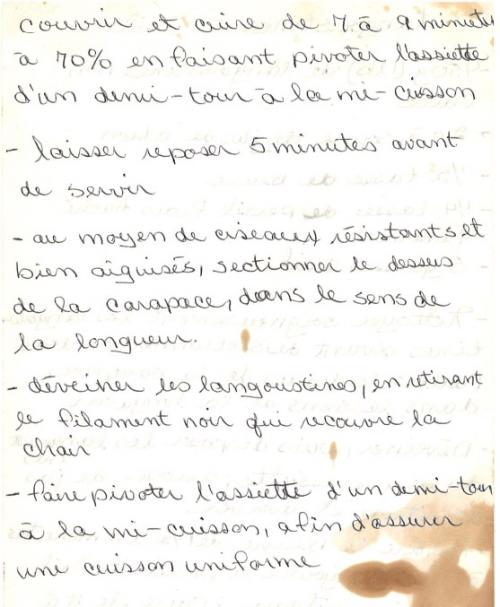 couvrir et cuire de 7 à 9 minutes
à 70% en faisant pivoter l'assiette
d'un demi-tour à la mi-cuisson
- laisser reposer 5 minutes avant
de servir
- au moyen de ciseaux résistants et
bien aiguisés, sectionner le dessus
de la carapace, dans le sens de
la longueur.
- déveiner les langoustines, en retirant
le filament noir qui recouvre la
chair
- faire pivoter l'assiette d'un demi-tour
à la mi-cuisson, afin d'assurer
une cuisson uniforme